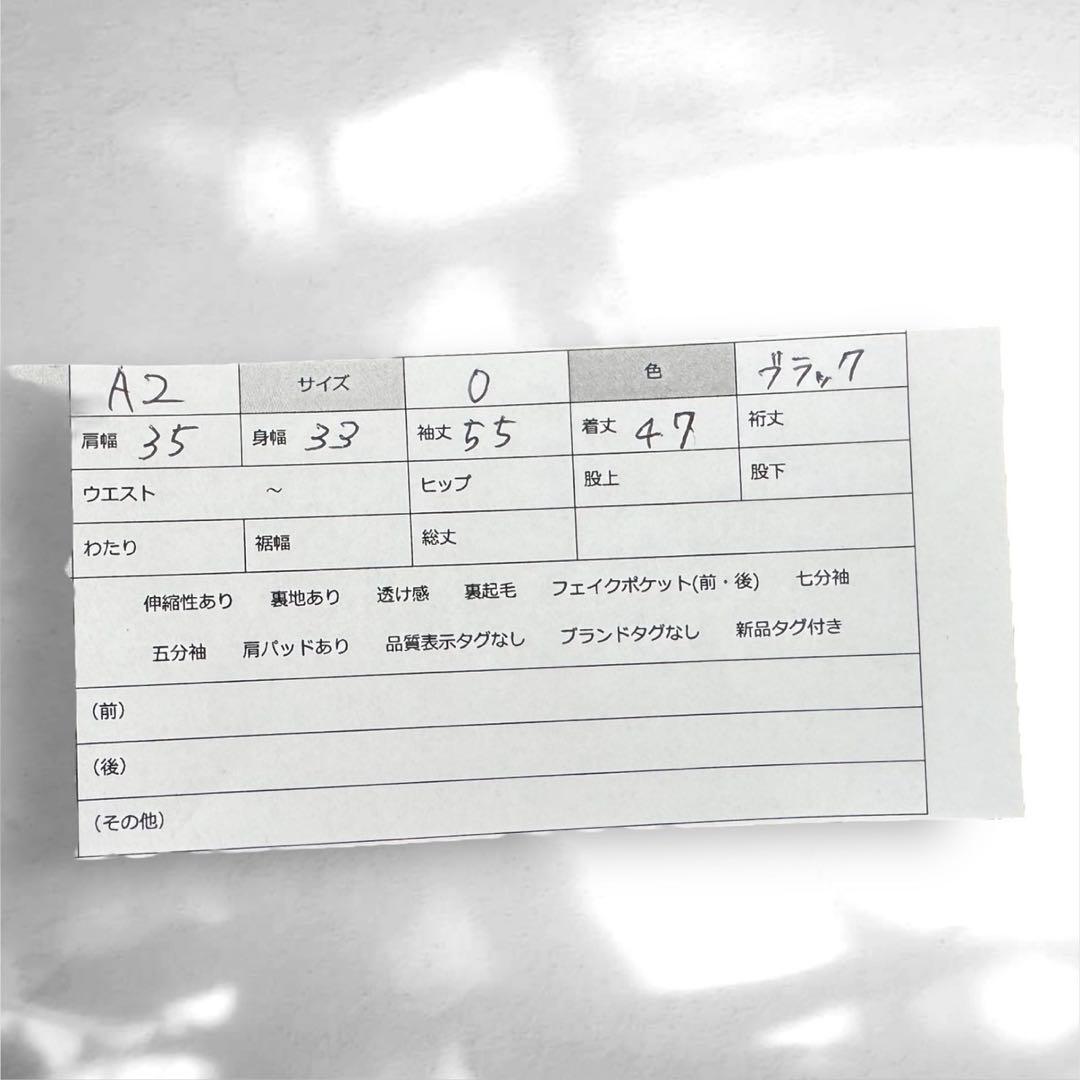 A2 サイズ 0 色 ブラック
肩幅 35 身幅 33 袖丈 55 着丈 47 裄丈
ウエスト ～ ヒップ 股上 股下
わたり 裾幅 総丈
伸縮性あり 裏地あり 透け感 裏起毛 フェイクポケット(前・後) 七分袖
五分袖 肩パッドあり 品質表示タグなし ブランドタグなし 新品タグ付き
(前)
(後)
(その他)